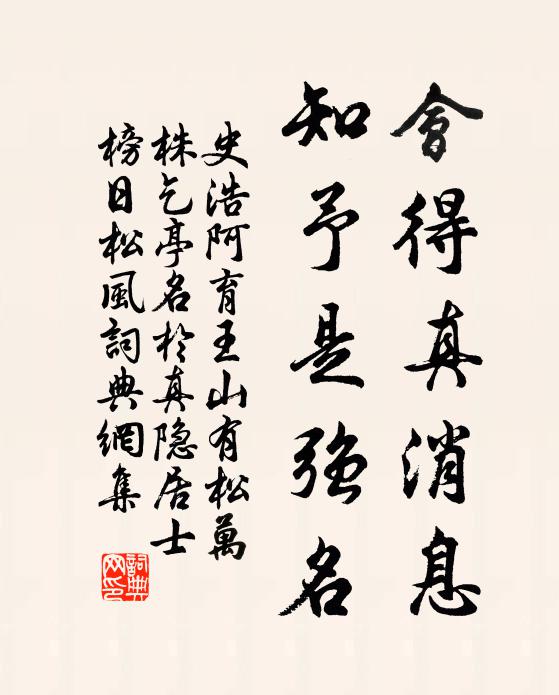 會得真消息
知予是強名
史浩阿育王山有松萬
株乞亭名於真隐居士
榜日松風詞典網集
詞典
网印